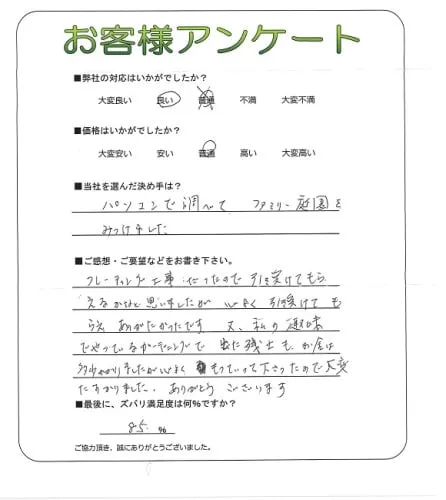 お客様アンケート
■弊社の対応はいかがでしたか?
大変良い 良い 普通 不満 大変不満
■価格はいかがでしたか?
大変安い 安い 普通 高い 大変高い
■当社を選んだ決め手は?
パソコンで調べて ファミリー庭園を
みつけました
■ご感想・ご要望などをお書き下さい。
フレーティング工事だったので引き受けてもら
えるかなと思いましたが 心よく引受けても
らえ ありがたかったです 又、私の趣味
でやっているガーデニングで 出た残土も、お金は
多少かかりましたが心よくもっていって下さったので大変
たすかりました、ありがとう ございます
■最後に、ズバリ満足度は何%ですか?
85 %
ご協力頂き、誠にありがとうございました。